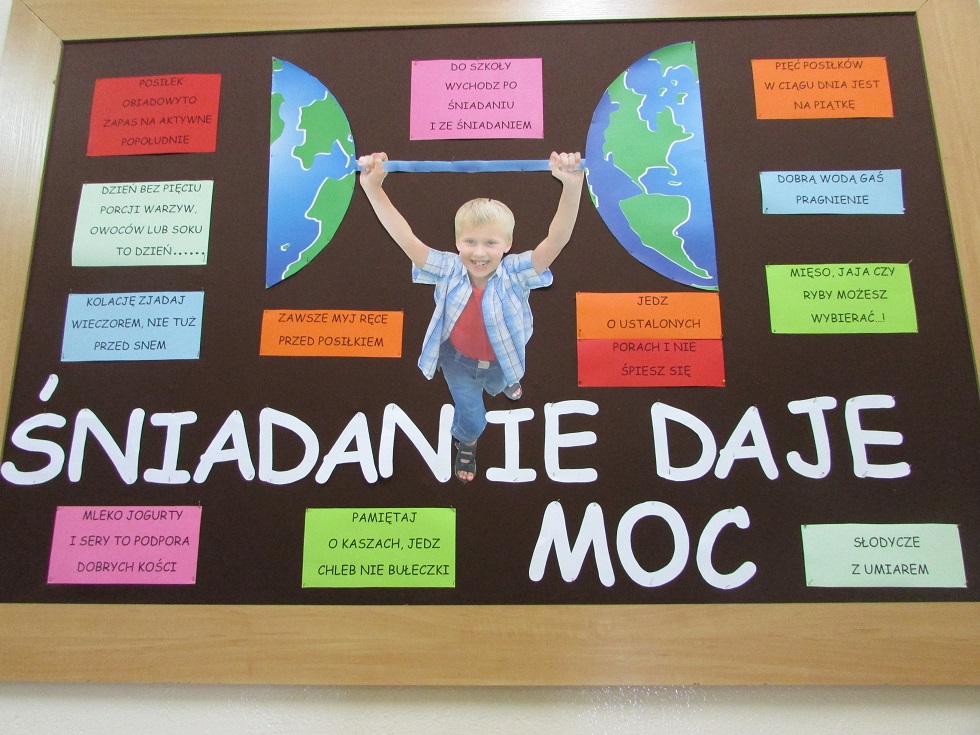 POSIŁEK
OBIADOWYTO
ZAPAS NA AKTYWNE
POPOŁUDNIE
DO SZKOŁY
WYCHODZ PO
ŚNIADANIU
I ZE ŚNIADANIEM
PIĘĆ POSIŁKÓW
W CIĄGU DNIA JEST
NA PIĄTKĘ
DZIEŃ BEZ PIĘCIU
PORCJI WARZYW,
OWOCÓW LUB SOKU
TO DZIEŃ......
DOBRĄ WODĄ GAŚ
PRAGNIENIE
KOLACJĘ ZJADAJ
WIECZOREM, NIE TUŻ
PRZED SNEM
ZAWSZE MYJ RĘCE
PRZED POSIŁKIEM
JEDZ
O USTALONYCH
PORACH I NIE
ŚPIESZ SIĘ
MIĘSO, JAJA CZY
RYBY MOŻESZ
WYBIERAĆ..!
ŚNIADANIE DAJE
MOC
MLEKO JOGURTY
I SERY TO PODPORA
DOBRYCH KOŚCI
PAMIĘTAJ
O KASZACH, JEDZ
CHLEB NIE BUŁECZKI
SŁODYCZE
Z UMIAREM